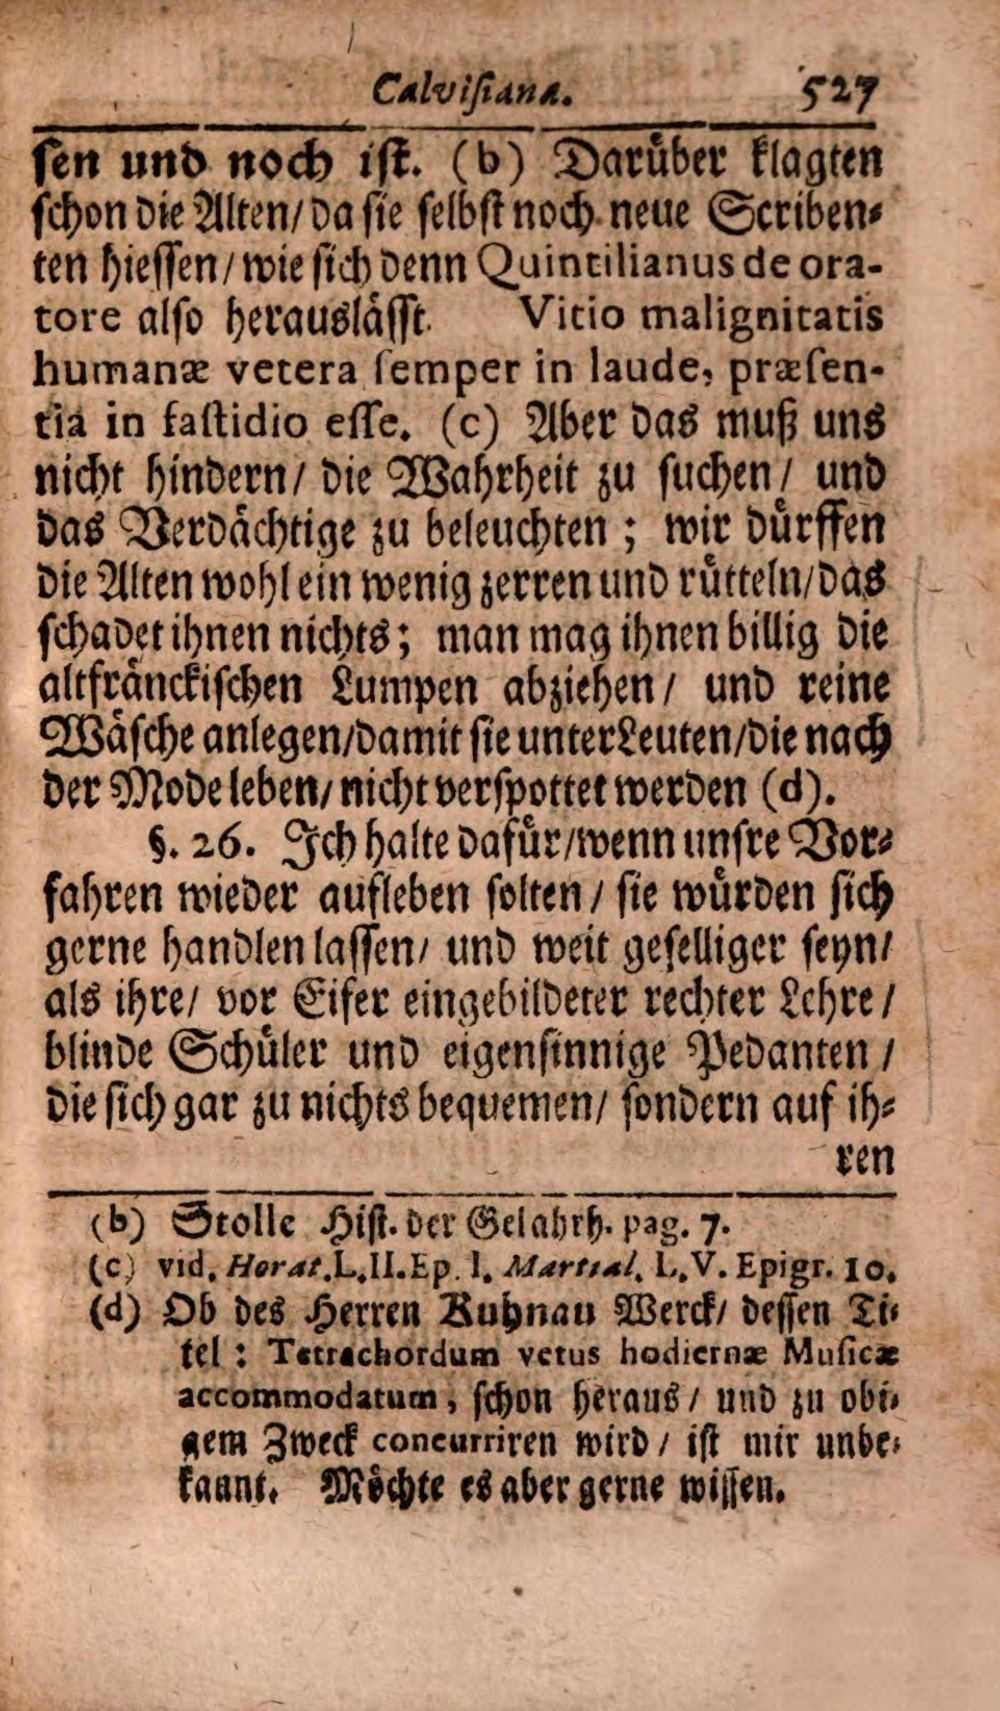 Calviſiana. 527
ſen und noch iſt. (b) Daruͤber klagten
ſchon die Alten/ da ſie ſelbſt noch neue Scriben⸗
ten hieſſen/ wie ſich denn Quintilianus de ora-
tore alſo herauslaͤſſt. Vitio malignitatis
humanæ vetera ſemper in laude, præſen-
tia in faſtidio eſſe. (c) Aber das muß uns
nicht hindern/ die Wahrheit zu ſuchen/ und
das Verdaͤchtige zu beleuchten; wir duͤrffen
die Alten wohl ein wenig zerren und ruͤtteln/ das
ſchadet ihnen nichts; man mag ihnen billig die
altfraͤnckiſchen Lumpen abziehen/ und reine
Waͤſche anlegen/ damit ſie unter Leuten/ die nach
der Mode leben/ nicht verſpottet werden (d).
§. 26. Ich halte dafuͤr/ wenn unſre Vor⸗
fahren wieder aufleben ſolten/ ſie wuͤrden ſich
gerne handlen laſſen/ und weit geſelliger ſeyn/
als ihre/ vor Eifer eingebildeter rechter Lehre/
blinde Schuͤler und eigenſinnige Pedanten/
die ſich gar zu nichts bequemen/ ſondern auf ih⸗
ren
(b) Stolle Hiſt. der Gelahrh. pag. 7.
(c) vid. Horat. L. II. Ep. I. Martial. L. V. Epigr. 10.
(d) Ob des Herren Kuhnau Werck/ deſſen Ti⸗
tel: Tetrachordum vetus hodiernæ Muſicæ
accommodatum, ſchon heraus/ und zu obi⸗
gem Zweck concurriren wird/ iſt mir unbe⸗
kannt. Moͤchte es aber gerne wiſſen.